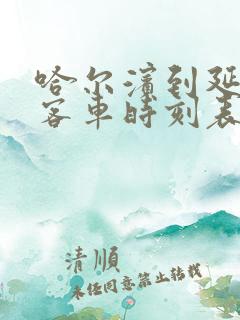 哈尔滨到延
客车时刻表
清順
未经同意禁止转载